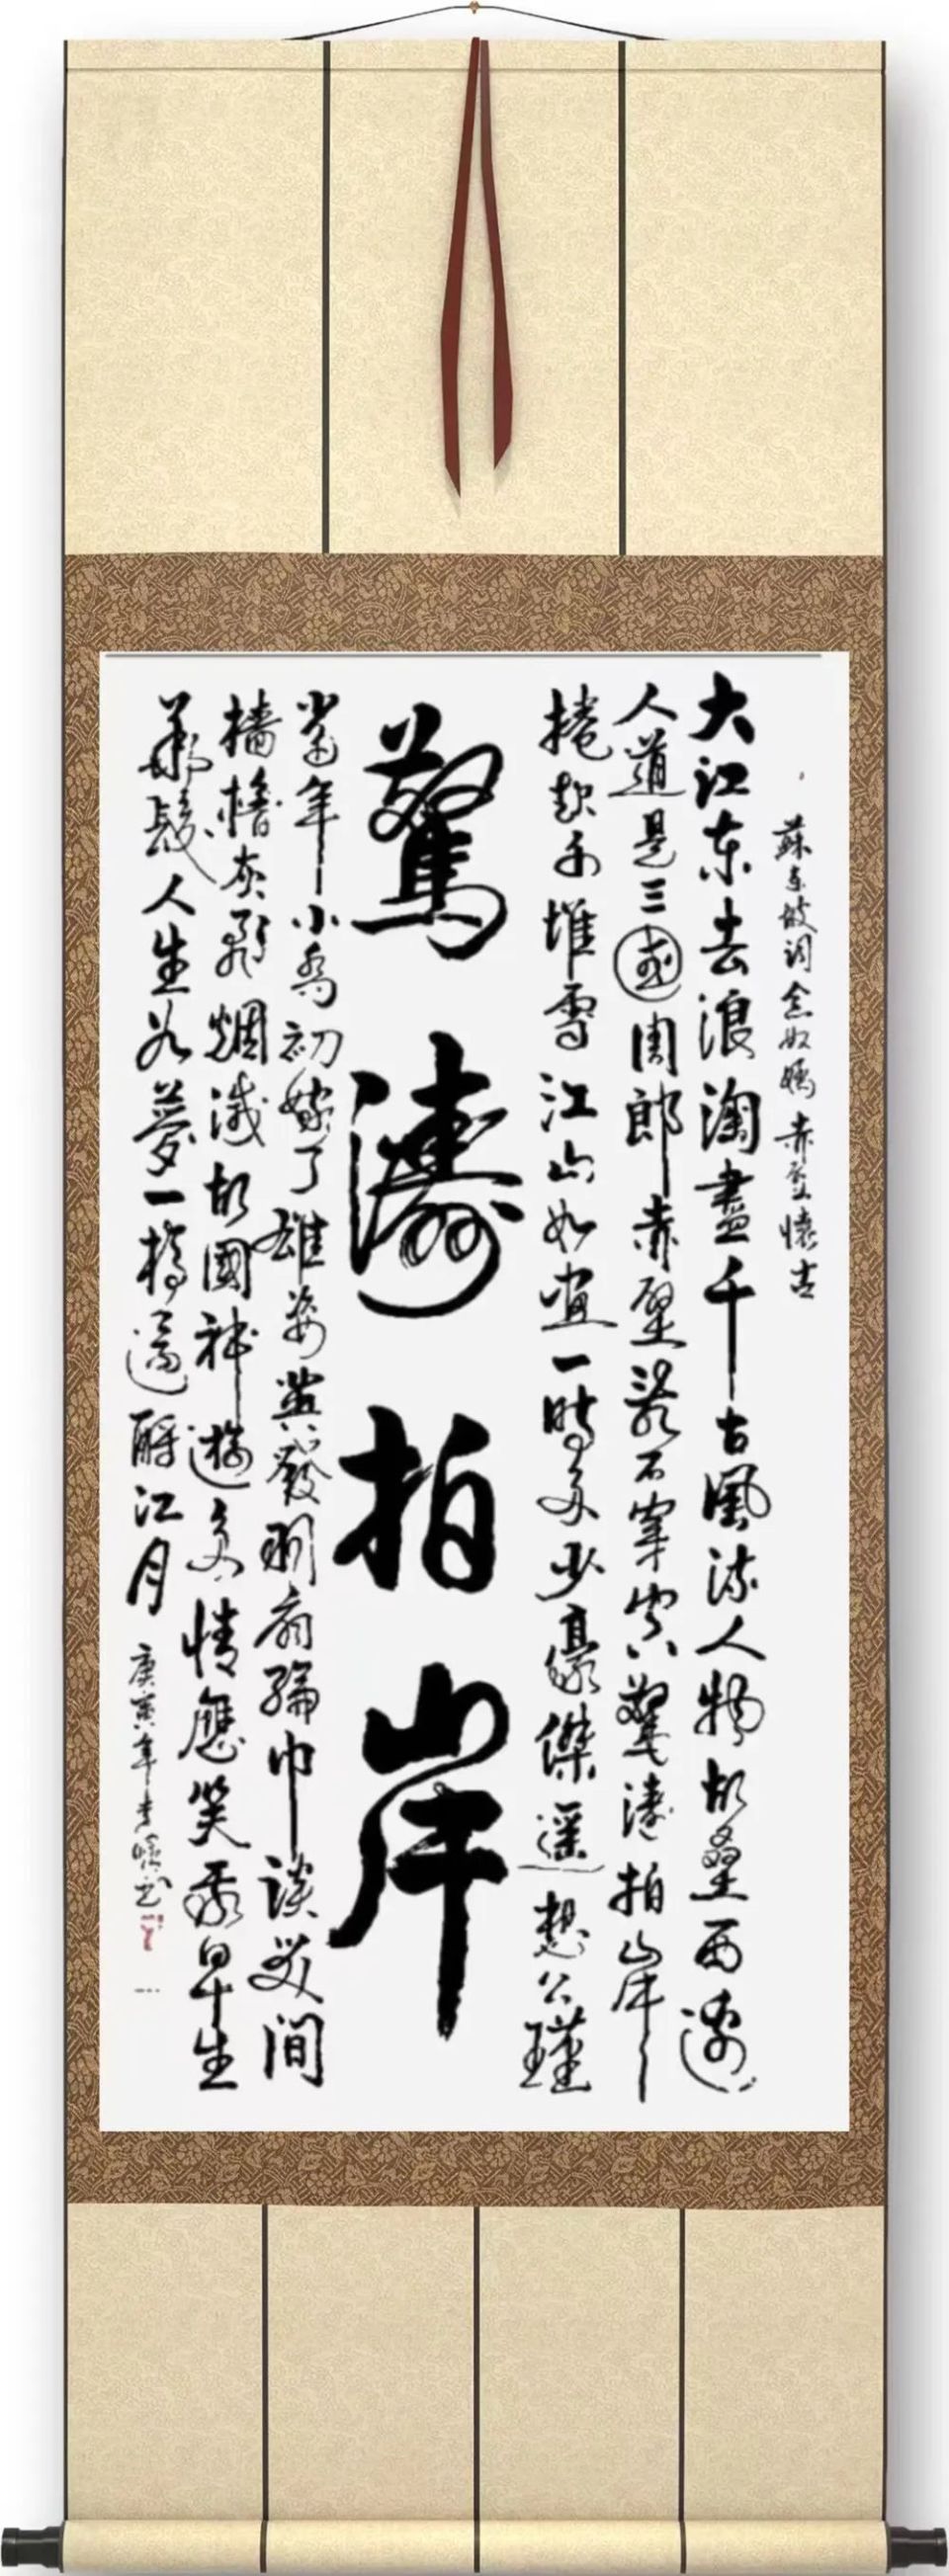 蘇东坡词念奴嬌赤壁懷古
大江东去浪淘盡千古風流人物故壘西邊
人道是三國周郎赤壁亂石穿空驚濤拍岸
捲起千堆雪江山如畫一時多少豪傑遥想公瑾
驚濤拍岸
當年小喬初嫁了雄姿英發羽扇綸巾談笑間
檣櫓灰飛烟滅故國神遊多情應笑我早生
華髮人生如夢一樽還酹江月
庚寅年